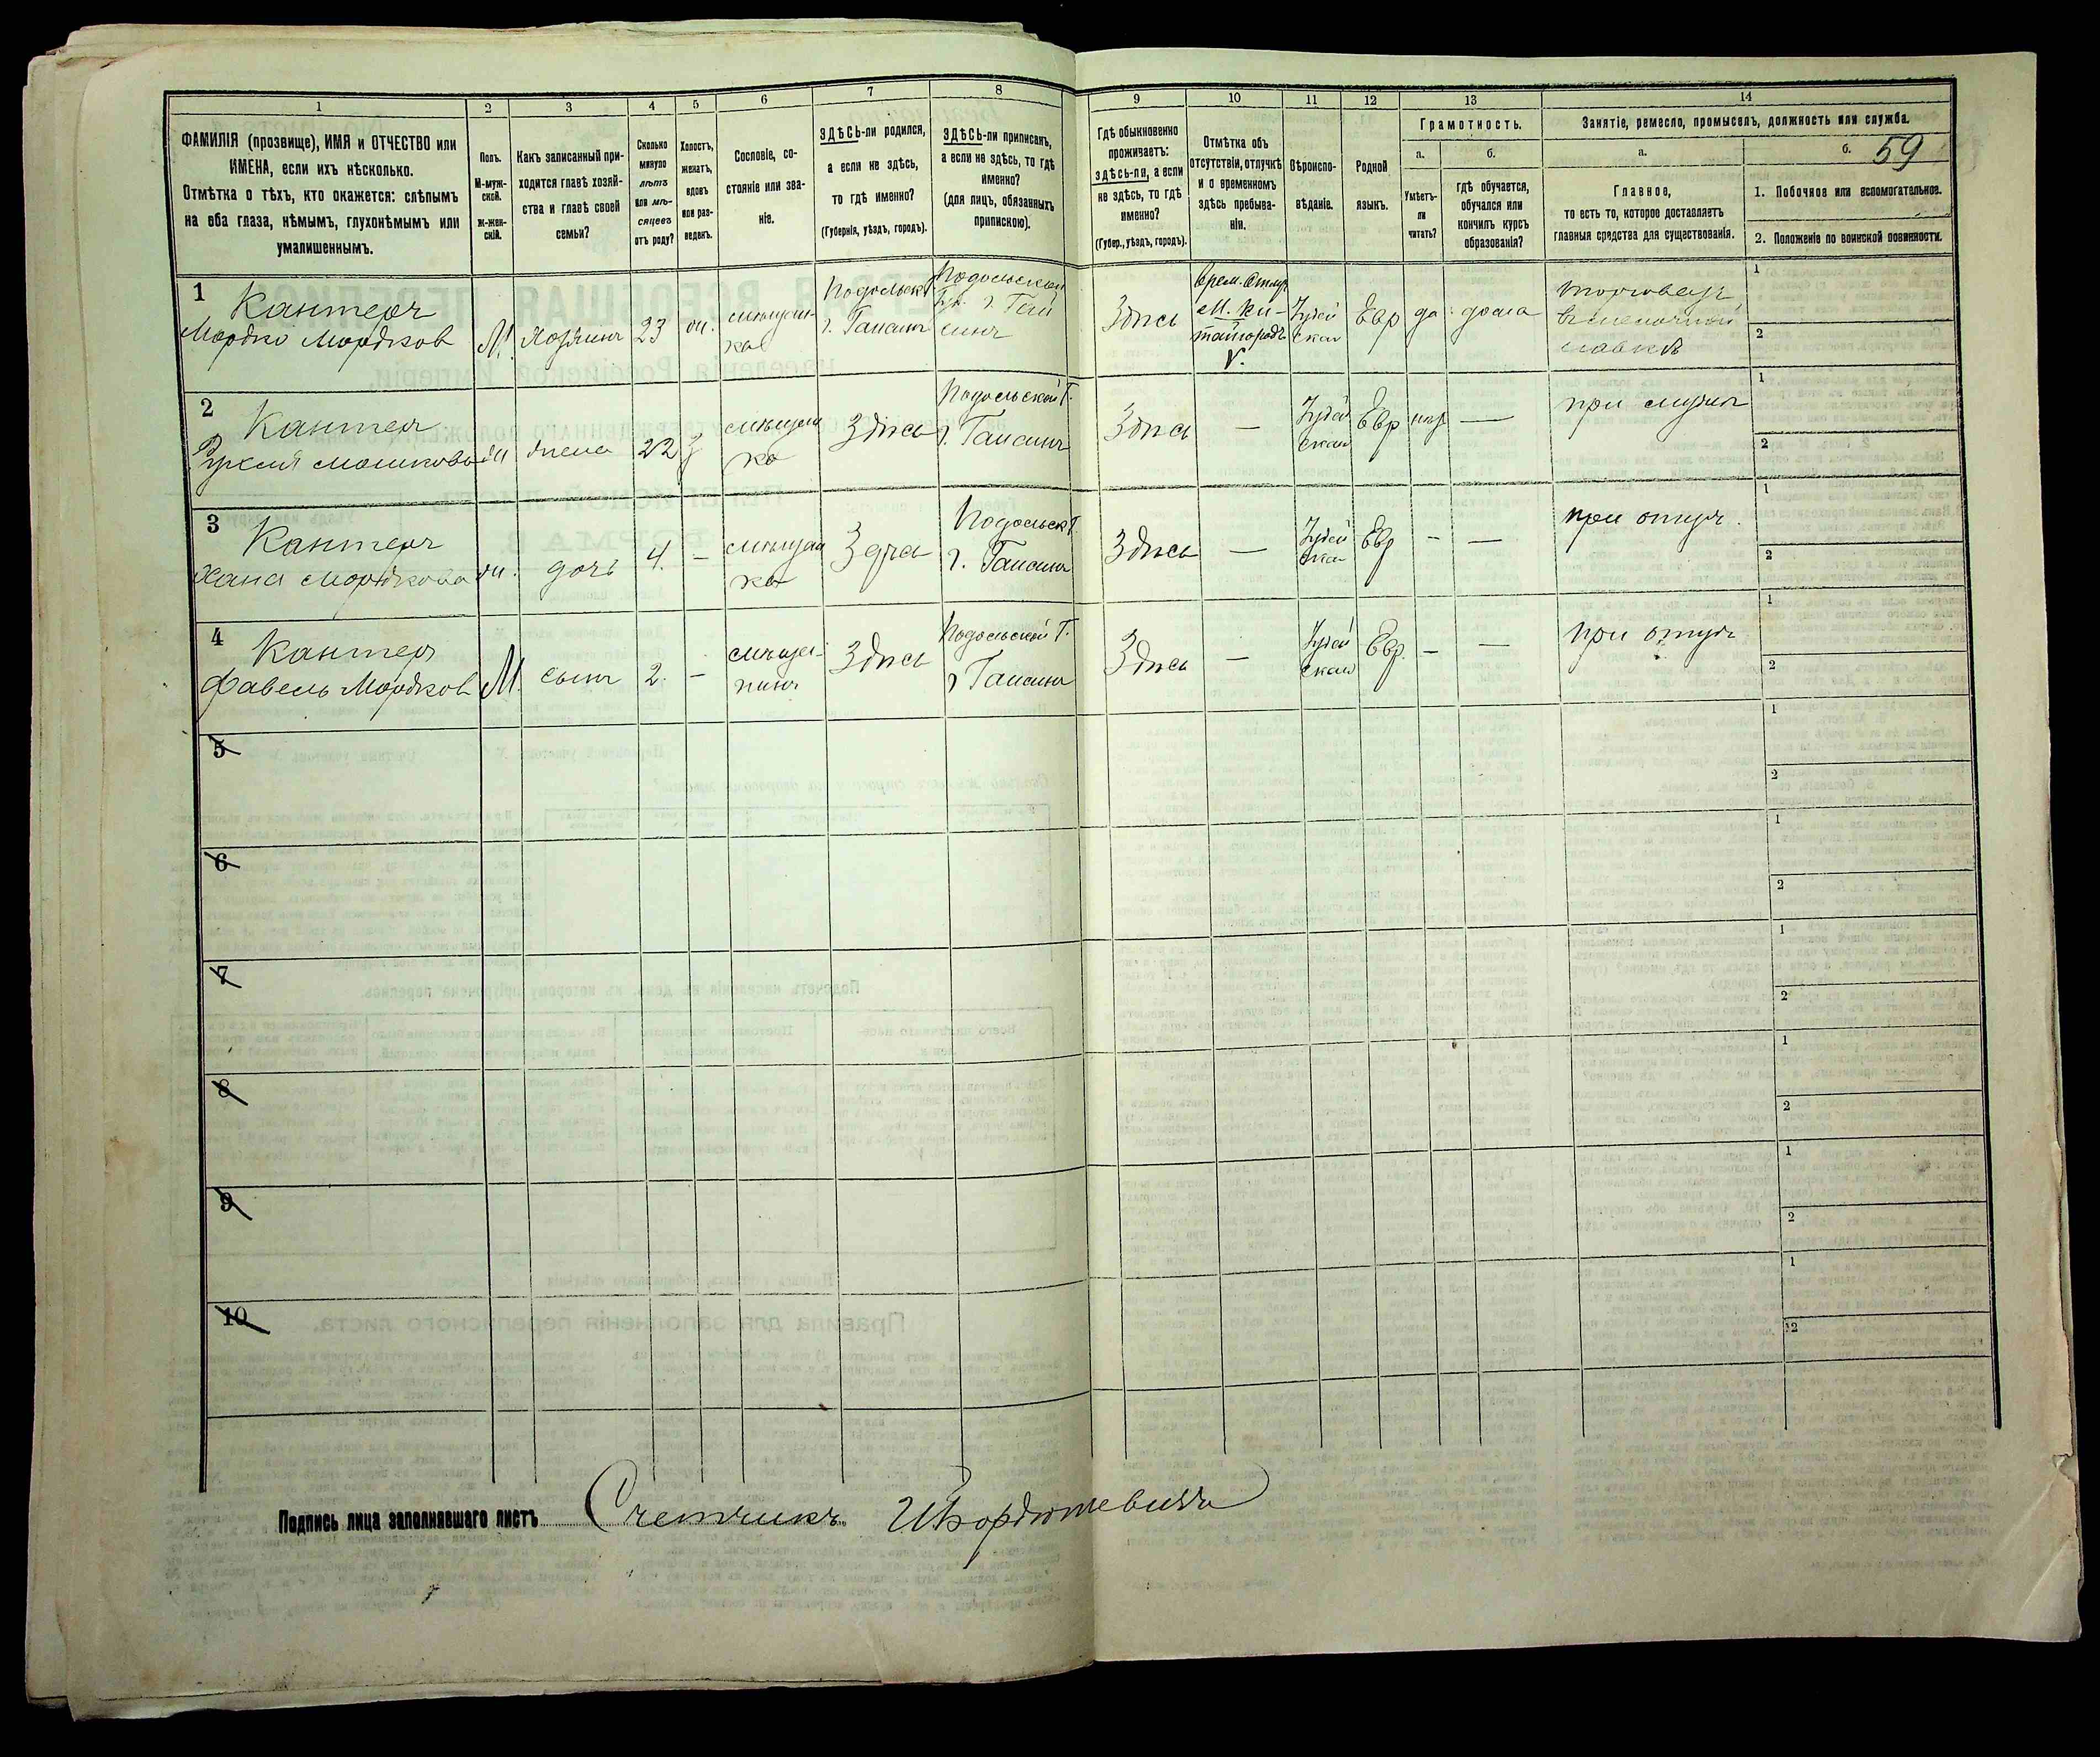 1
2
3
4
5
6
7
8
9
10
11
12
13
14
ФАМИЛІЯ (прозвище), ИМЯ и ОТЧЕСТВО или
ИМЕНА, если ихъ нѣсколько.
Отмѣтка о тѣхъ, кто окажется: слѣпымъ
на оба глаза, нѣмымъ, глухонѣмымъ или
умалишеннымъ.
Полъ.
М-муж-
ской.
Ж-жен-
скій.
Какъ записанный при-
ходится главѣ хозяй-
ства и главѣ своей
семьи?
Сколько
минуло
лѣтъ
или мѣ-
сяцевъ
отъ роду?
Холостъ,
женатъ,
вдовъ
или раз-
веденъ.
Сословіе, со-
стояніе или зва-
ніе.
ЗДѢСЬ-ли родился,
а если не здѣсь,
то гдѣ именно?
(Губернія, уѣздъ, городъ).
ЗДѢСЬ-ли приписанъ,
а если не здѣсь, то гдѣ
именно?
(для лицъ, обязанныхъ
припискою).
Гдѣ обыкновенно
проживаетъ:
здѣсь-ли, а если
не здѣсь, то гдѣ
именно?
(Губер., уѣздъ, городъ).
Отмѣтка объ
отсутствіи, отлучкѣ
и о временномъ
здѣсь пребыва-
ніи.
Вѣроиспо-
вѣданіе.
Родной
языкъ.
Грамотность.
а.
Умѣетъ-
ли
читать?
б.
гдѣ обучается,
обучался или
кончилъ курсъ
образованія?
Занятіе, ремесло, промыселъ, должность или служба.
а.
Главное,
то есть то, которое доставляетъ
главныя средства для существованія.
б.
59
1. Побочное или вспомогательное.
2. Положеніе по воинской повинности.
1
Кантеръ
Мордко Мордков
М.
Хозяинъ
23
Подольск
г. Гайсинъ
Подольской
Губ. г. Гай
синъ
Здѣсь
Врем. отлуч
М. Ки-
тайгородъ
Іудей
ская
Евр
да
дома
торговецъ
лавкѣ
1
2
2
Кантеръ
Мошкова
жена
22
мѣщан
ка
Здѣсь
Подольской Г.
г. Гайсинъ
Здѣсь
—
Іудей
ская
Евр
—
при мужѣ
1
2
3
Кантеръ
Хана Мордкова
дочь
4.
—
мѣщан
ка
Подольск Г
г. Гайсинъ
Здѣсь
—
Іудей
ская
Евр
–
—
при отцѣ.
1
2
4
Кантеръ
Фавель Мордков
М.
сынъ
2.
—
мѣща-
нинъ
Здѣсь
Подольской Г.
г Гайсинъ
Здѣсь
—
Іудей
ская
Евр.
–
—
при отцѣ
1
2
5
1
2
6
1
2
7
1
2
8
1
2
9
1
2
10
1
2
Подпись лица заполнявшаго листъ Счетчикъ